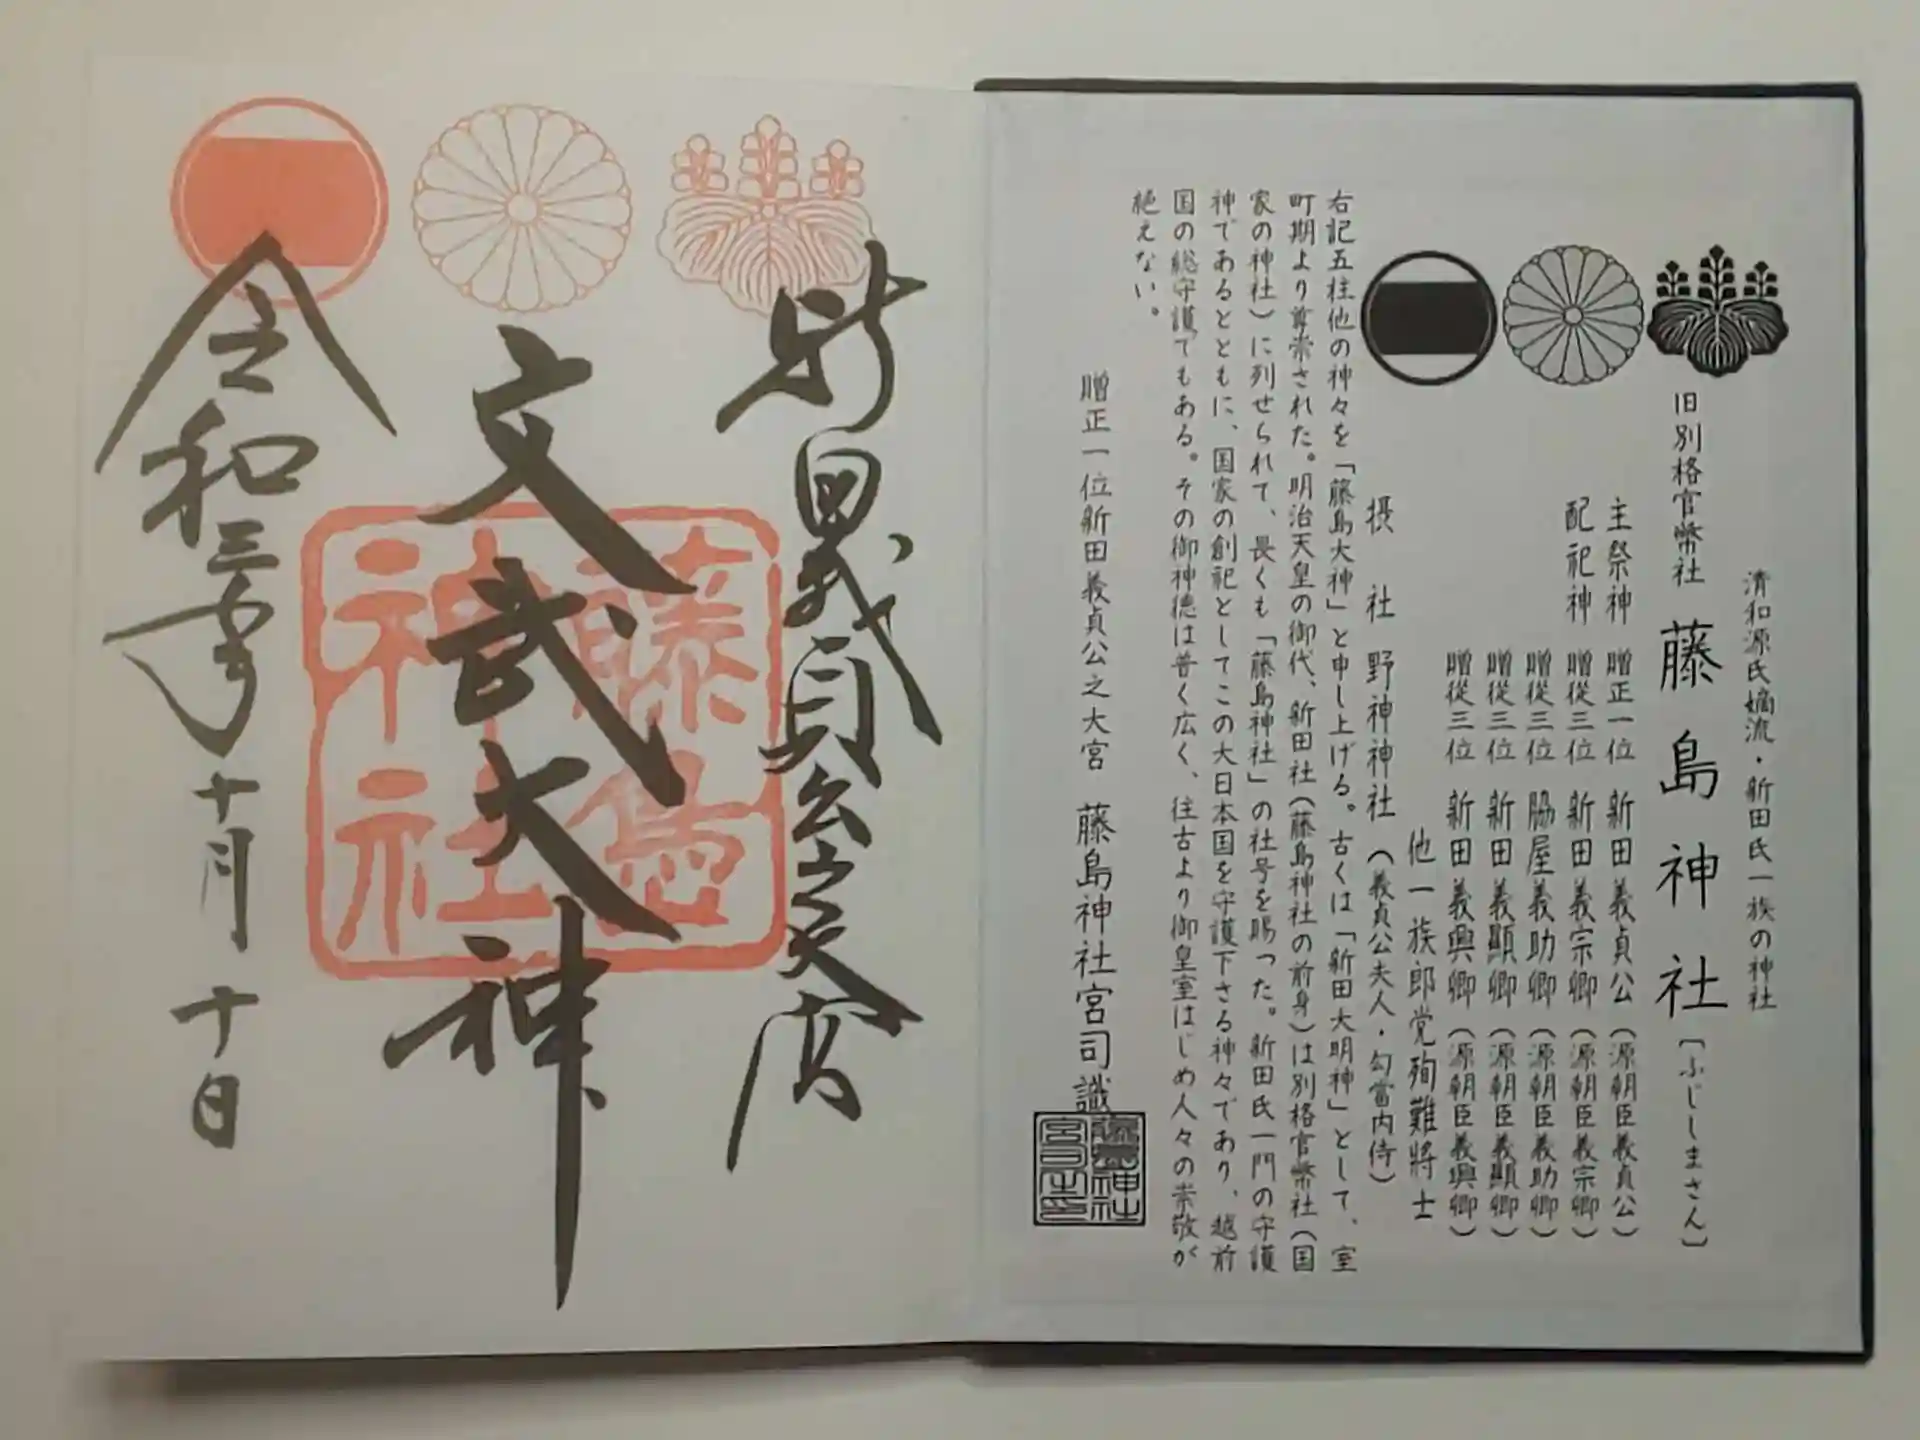 清和源氏嫡流・新田氏一族の神社
旧別格官幣社 藤島神社〔ふじしまさん〕
主祭神 贈正一位 新田義貞公(源朝臣義貞公)
配祀神 贈従三位 新田義宗卿(源朝臣義宗卿)
贈従三位 脇屋義助卿(源朝臣義助卿)
贈従三位 新田義顯卿(源朝臣義顯卿)
贈従三位 新田義興卿(源朝臣義興卿)
他一族郎党殉難将士
摂社 野神神社(義貞公夫人・勾當内侍)
右記五柱他の神々を「藤島大神」と申し上げる。古くは「新田大明神」として、室
町期より尊崇された。明治天皇の御代、新田社(藤島神社の前身)は別格官幣社(国
家の神社)に列せられて、畏くも「藤島神社」の社号を賜った。新田氏一門の守護
神であるとともに、国家の創祀としてこの大日本国を守護下さる神々であり、越前
国の総守護でもある。その御神徳は普く広く、往古より御皇室はじめ人々の崇敬が
絶えない。
贈正一位新田義貞公之大宮 藤島神社宮司識
藤島神社
宮司之印
新田義貞公之大宮
文武大神
藤島
神社
令和三年十月十日